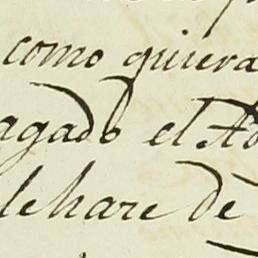 como quiera
agado el Ao
le hare dè